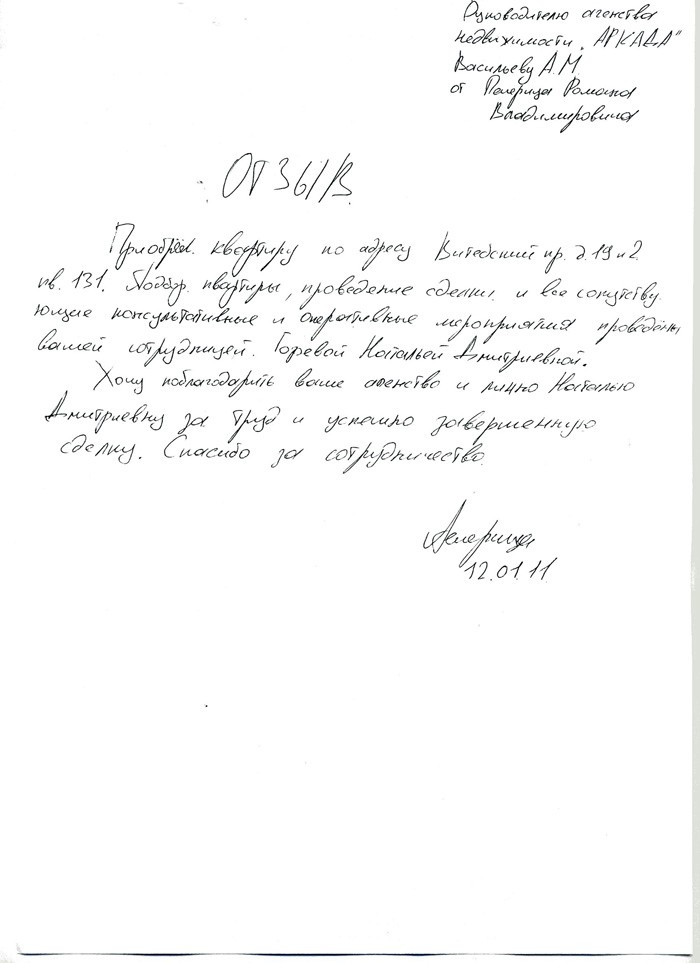 Руководителю агенства
недвижимости „АРКАДА"
Васильеву А.М.
от Пелерица Романа
Владимировича
ОТЗЫВ
Приобрёл квартиру по адресу Витебский пр. д. 19 к 2
кв. 131. Подбор квартиры, проведение сделки и все сопутству
ющие консультативные и оперативные мероприятия проведены
вашей сотрудницей Горевой Натальей Дмитриевной.
Хочу поблагодарить ваше агенство и лично Наталью
Дмитриевну за труд и успешно завершенную
сделку. Спасибо за сотрудничество.
12.01.11